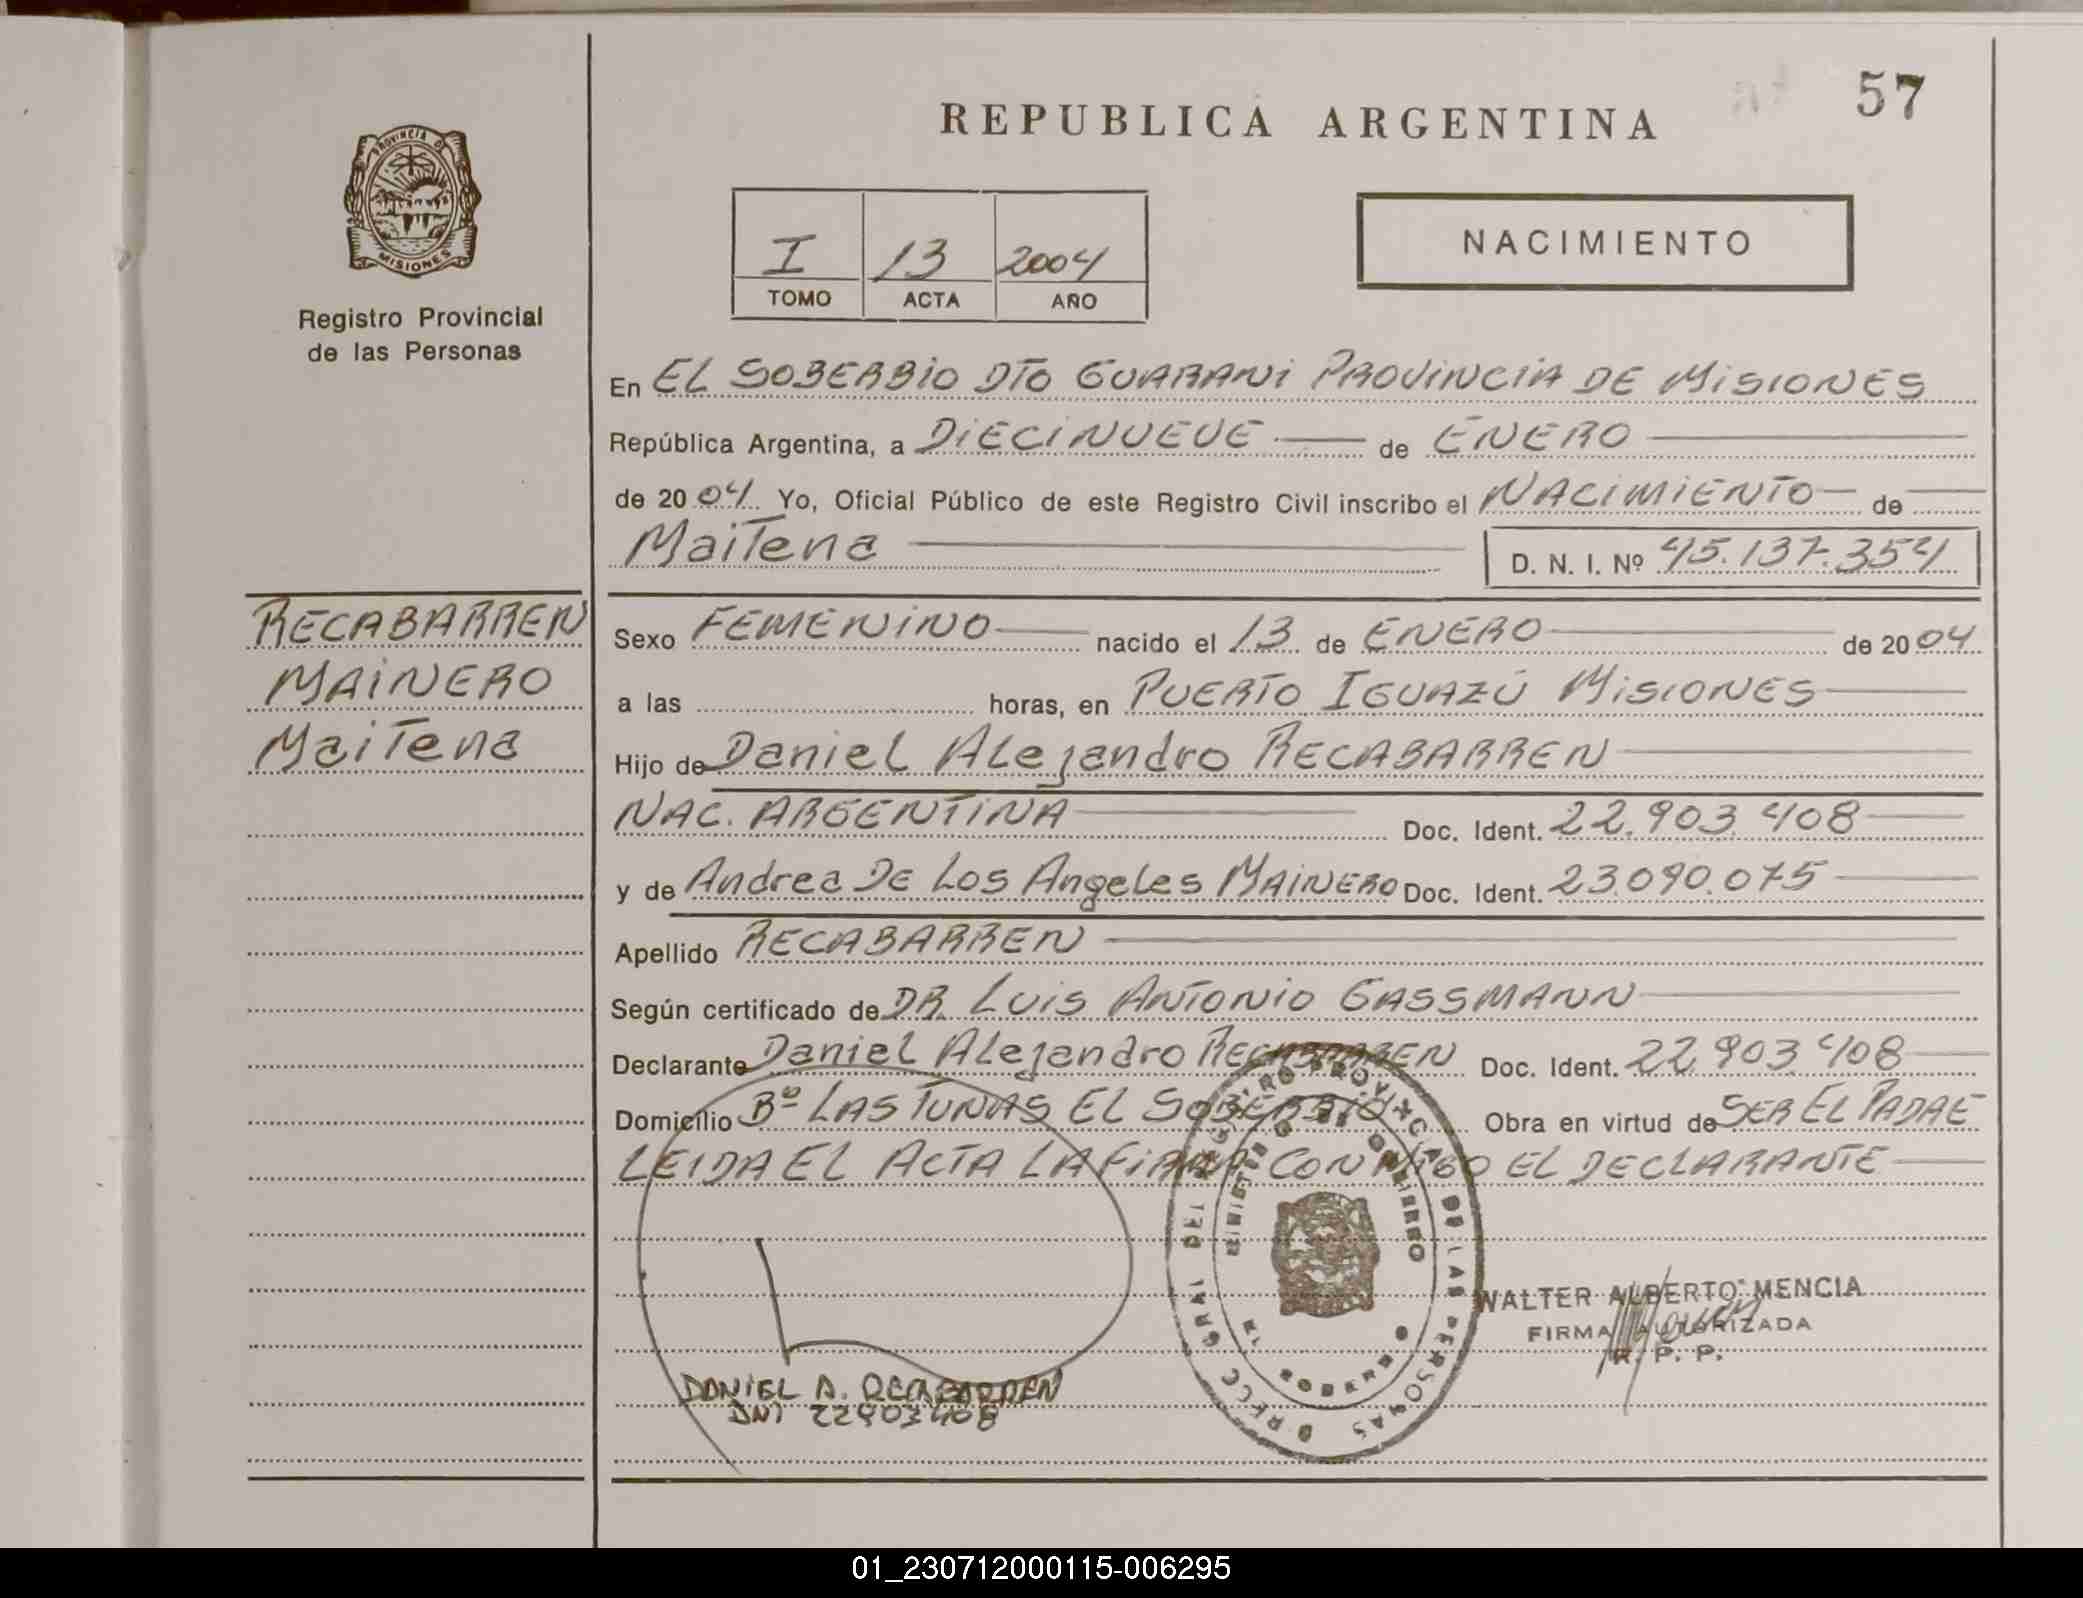 57
REPUBLICA ARGENTINA
PROVINCIA DE
MISIONES
Registro Provincial
de las Personas
I 13 2004
TOMO ACTA AÑO
NACIMIENTO
En EL SOBERBIO DTO GUARANI PROVINCIA DE MISIONES
República Argentina, a DIECINUEVE de ENERO
de 2004 Yo, Oficial Público de este Registro Civil inscribo el NACIMIENTO de
Maitena D. N. I. Nº 45.137.354
RECABARREN
MAINERO
Maitena
Sexo FEMENINO nacido el 13 de ENERO de 2004
a las horas, en PUERTO IGUAZÚ MISIONES
Hijo de Daniel Alejandro RECABARREN
NAC. ARGENTINA Doc. Ident. 22.903.408
y de Andrea De Los Angeles MAINERO Doc. Ident. 23.090.075
Apellido RECABARREN
Según certificado de DR. LUIS ANTONIO GASSMANN
Declarante Daniel Alejandro RECABARREN Doc. Ident. 22.903.408
Domicilio Bº LAS TUNAS EL SOBERBIO Obra en virtud de SER EL PADRE
LEIDA EL ACTA LA FIRMA CONMIGO EL DECLARANTE
DIRECC GRAL DEL REGISTRO PROVINCIAL DE LAS PERSONAS
MINISTERIO DE GOBIERNO
WALTER ALBERTO MENCIA
FIRMA AUTORIZADA
R. P. P.
DANIEL A. RECABARREN
DNI 22903408
01_230712000115-006295